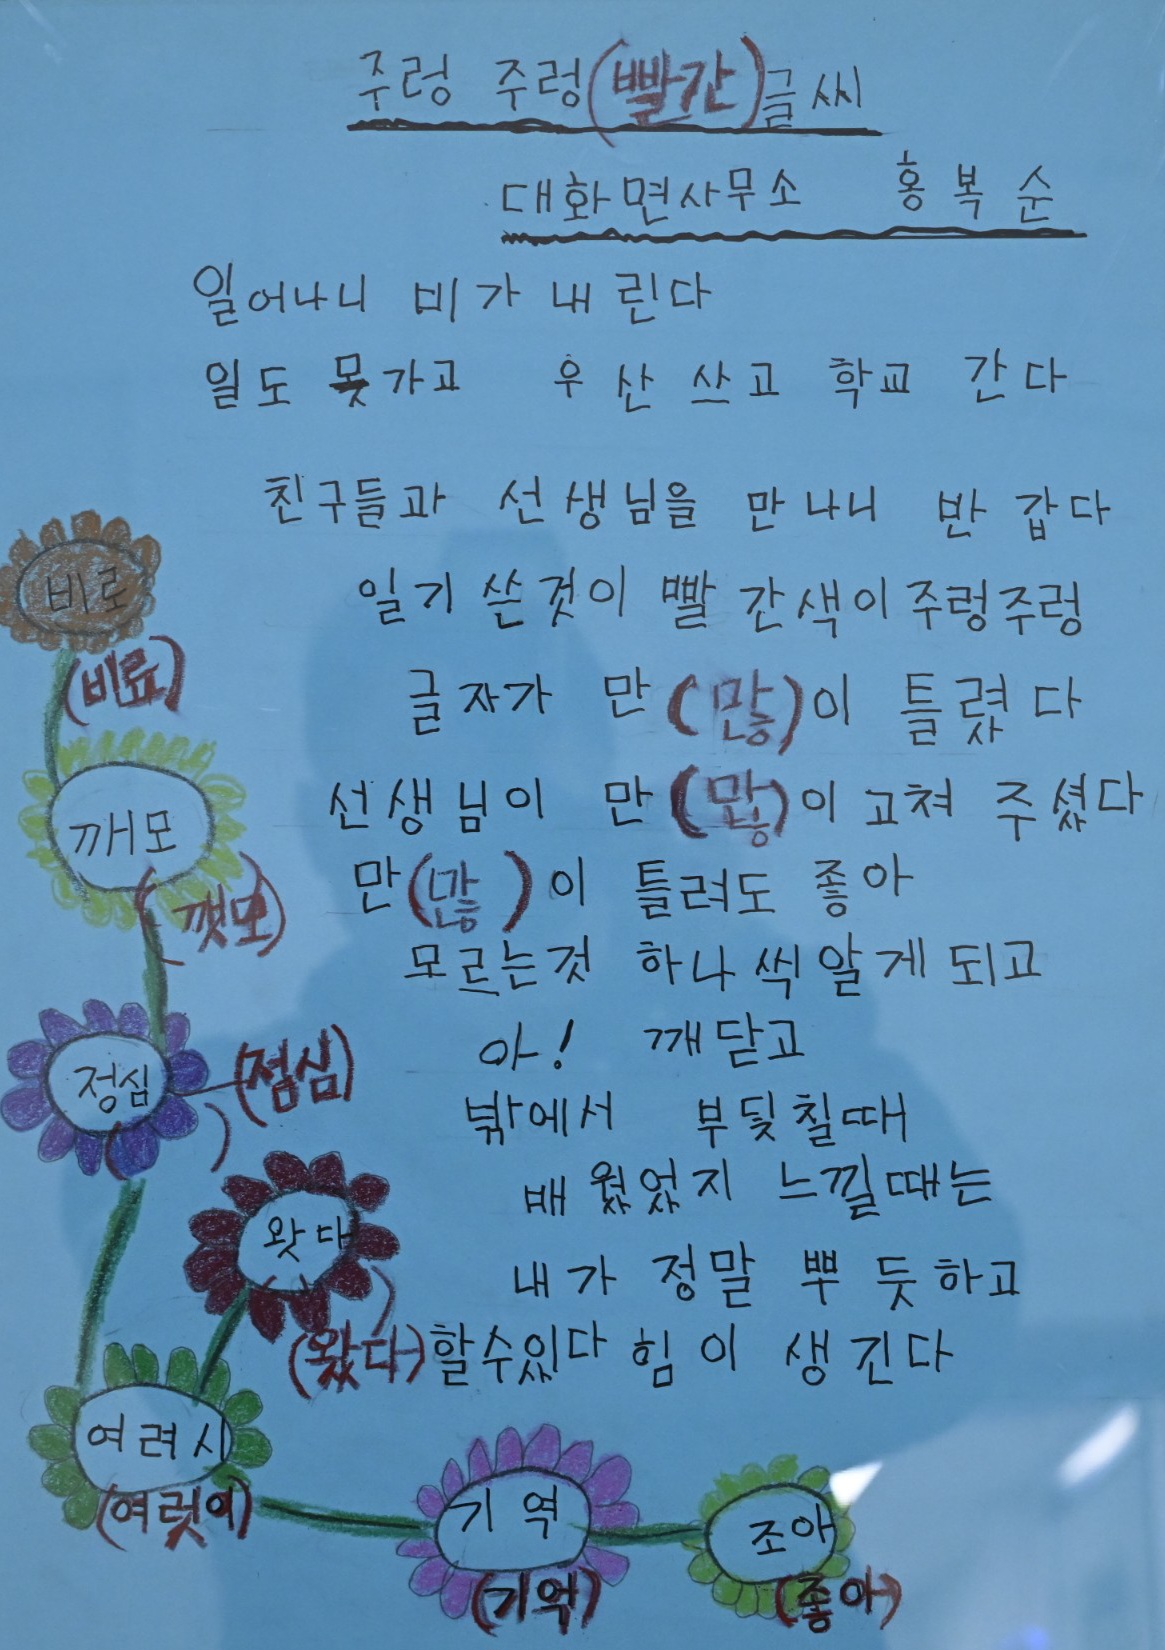 주렁 주렁(빨간)글씨
대화면사무소 홍복순
일어나니 비가 내린다
일도 못가고 우산 쓰고 학교 간다
친구들과 선생님을 만나니 반갑다
일기 쓴것이 빨간색이 주렁주렁
글자가 만(많)이 틀렸다
선생님이 만(많)이 고쳐 주셨다
만(많)이 틀려도 좋아
모르는것 하나씩 알게되고
아! 깨닫고
밖에서 부딪칠때
배웠었지 느낄때는
내가 정말 뿌듯하고
할수있다 힘이 생긴다
비로
(비료)
깨모
(깻모)
정심
(점심)
왓다
(왔다)
여려시
(여럿이)
기역
(기억)
조아
(좋아)